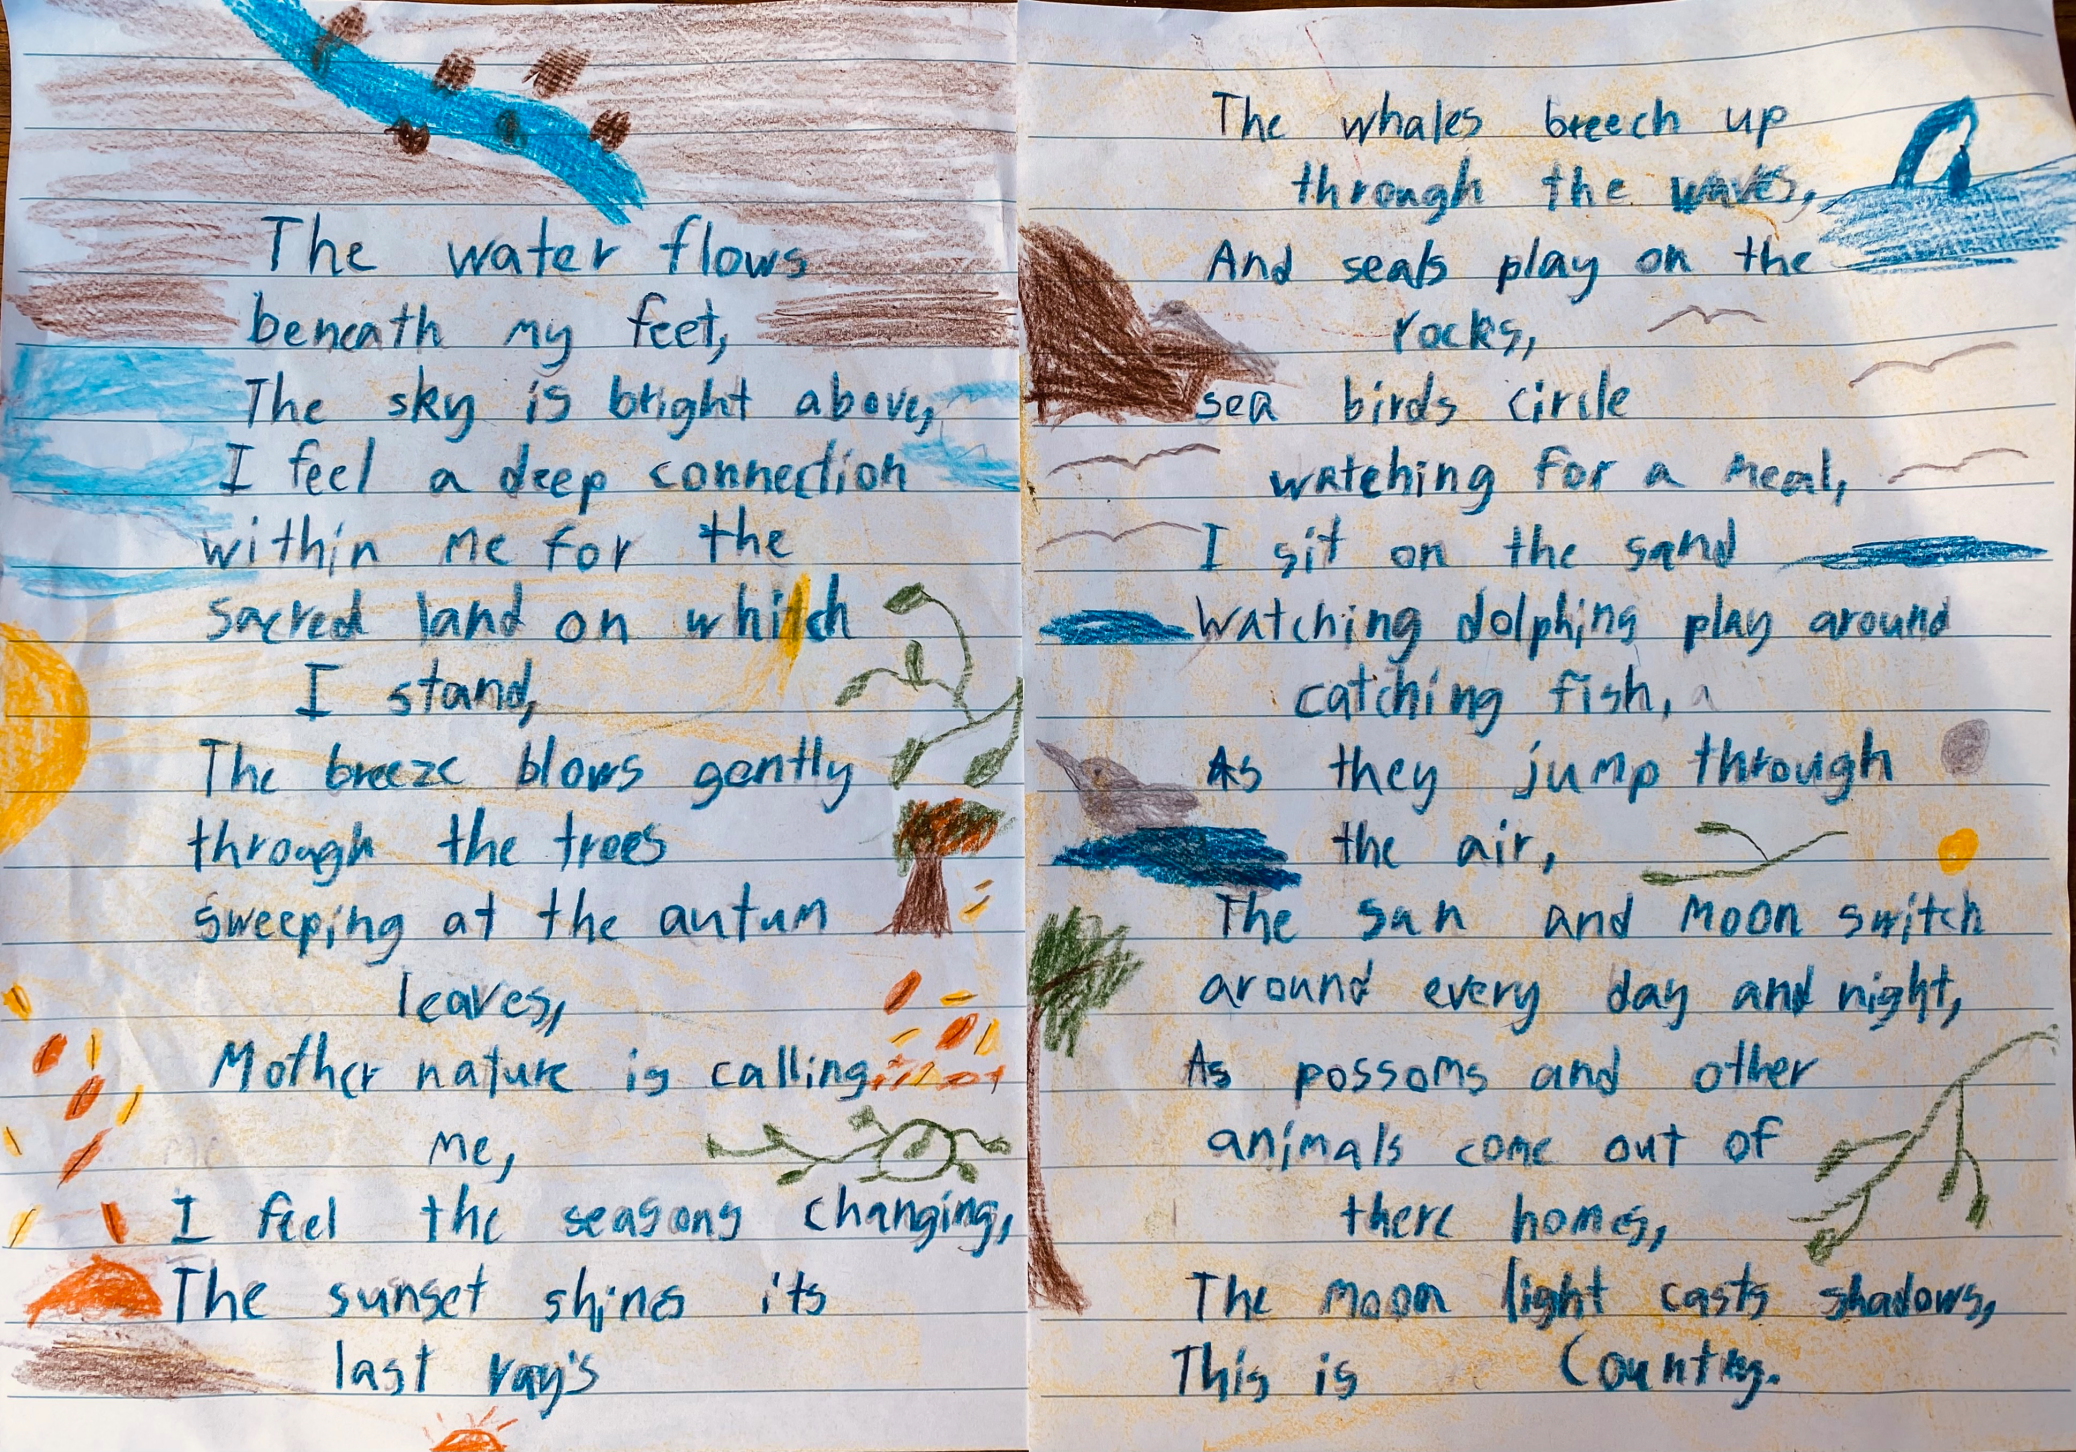 The water flows
beneath my feet,
The sky is bright above,
I feel a deep connection
within me for the
sacred land on which
I stand,
The breeze blows gently
through the trees
sweeping at the autum
leaves,
Mother nature is calling
me,
I feel the seasons changing,
The sunset shines its
last ray's
The whales breech up
through the waves,
And seals play on the
rocks,
sea birds circle
watching for a meal,
I sit on the sand
watching dolphins play around
catching fish,
As they jump through
the air,
The sun and moon switch
around every day and night,
As possoms and other
animals come out of
there homes,
The moon light casts shadows,
This is Country.